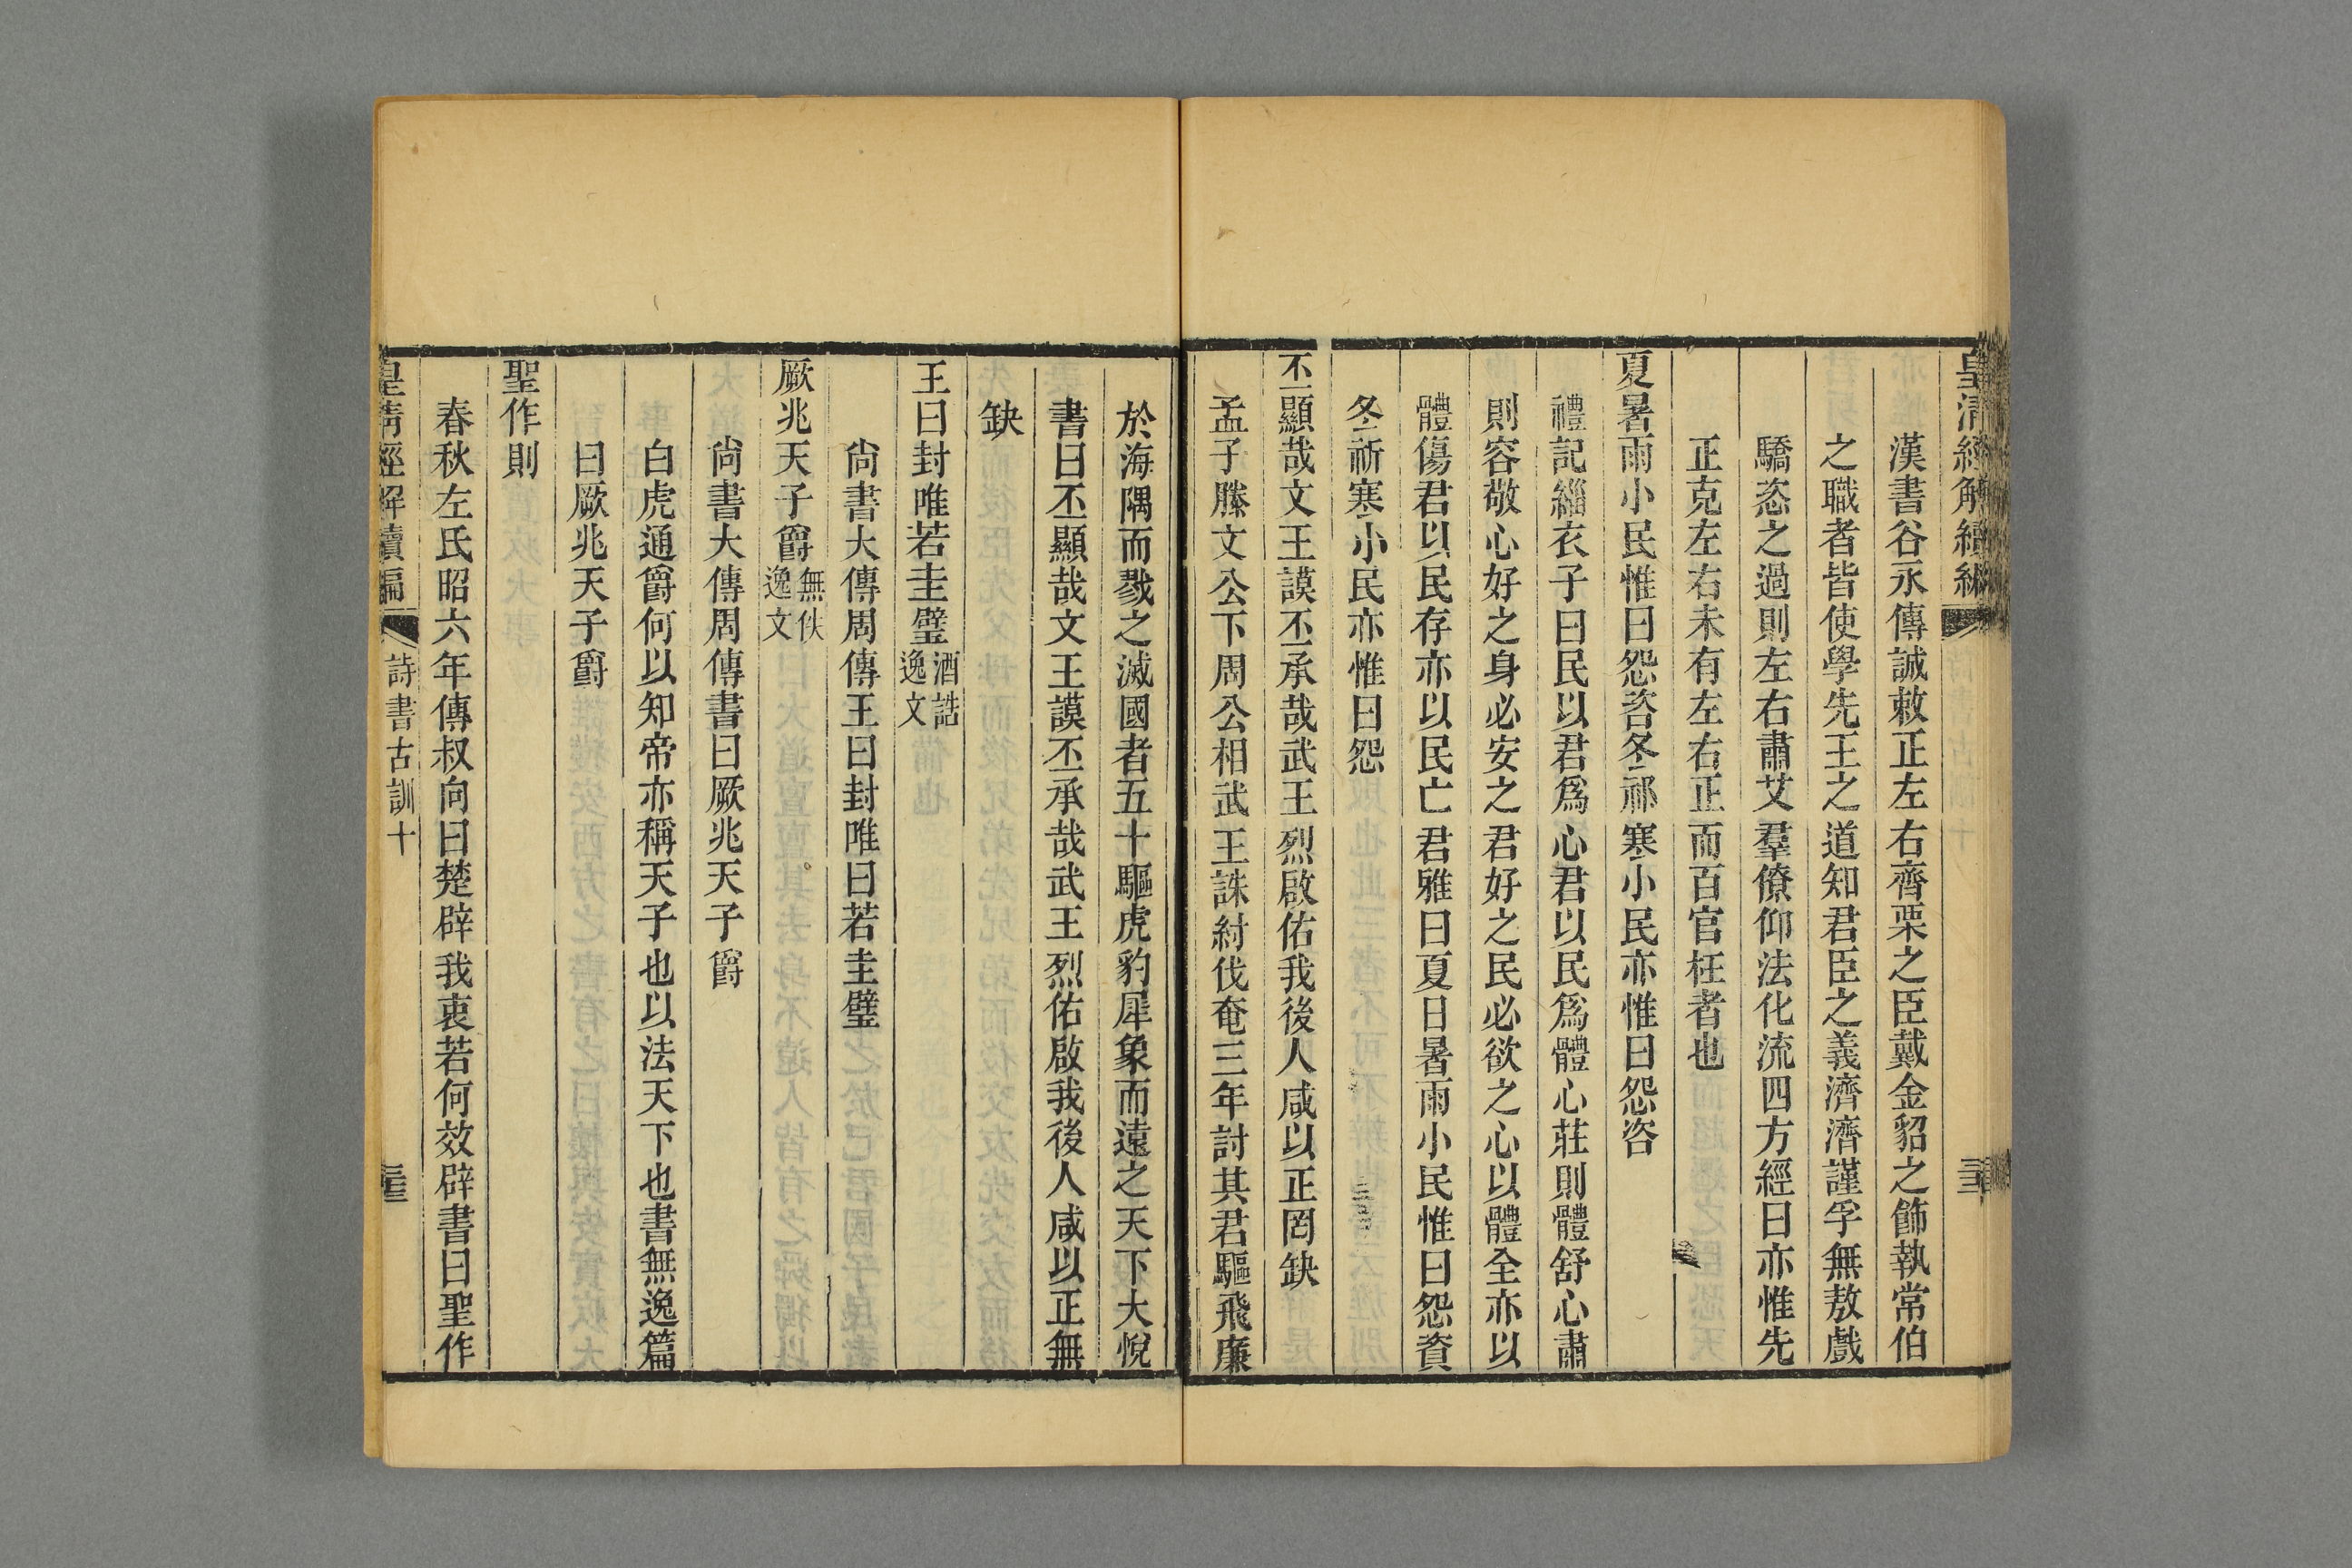 皇清經解續編
漢書谷永傳誠敕正左右齊栗之臣戴金貂之飾執常伯
之職者皆使學先王之道知君臣之義濟濟謹孚無敖戲
驕恣之過則左右肅艾羣僚仰法化流四方經曰亦惟先
正克左右未有左右正而百官枉者也
夏暑雨小民惟曰怨咨冬祁寒小民亦惟曰怨咨
禮記緇衣子曰民以君爲心君以民爲體心莊則體舒心肅
則容敬心好之身必安之君好之民必欲之心以體全亦以
體傷君以民存亦以民亡君雅曰夏日暑雨小民惟曰怨資
冬祈寒小民亦惟曰怨
丕顯哉文王謨丕承哉武王烈啟佑我後人咸以正罔缺
孟子滕文公下周公相武王誅紂伐奄三年討其君驅飛廉
於海隅而戮之滅國者五十驅虎豹犀象而遠之天下大悅
書曰丕顯哉文王謨丕承哉武王烈佑啟我後人咸以正無
缺
王曰封唯若圭璧酒誥逸文
尙書大傳周傳王曰封唯曰若圭璧
厥兆天子爵無佚逸文
尙書大傳周傳書曰厥兆天子爵
白虎通爵何以知帝亦稱天子也以法天下也書無逸篇
曰厥兆天子爵
聖作則
春秋左氏昭六年傳叔向曰楚辟我衷若何效辟書曰聖作
皇清經解續編 詩書古訓十